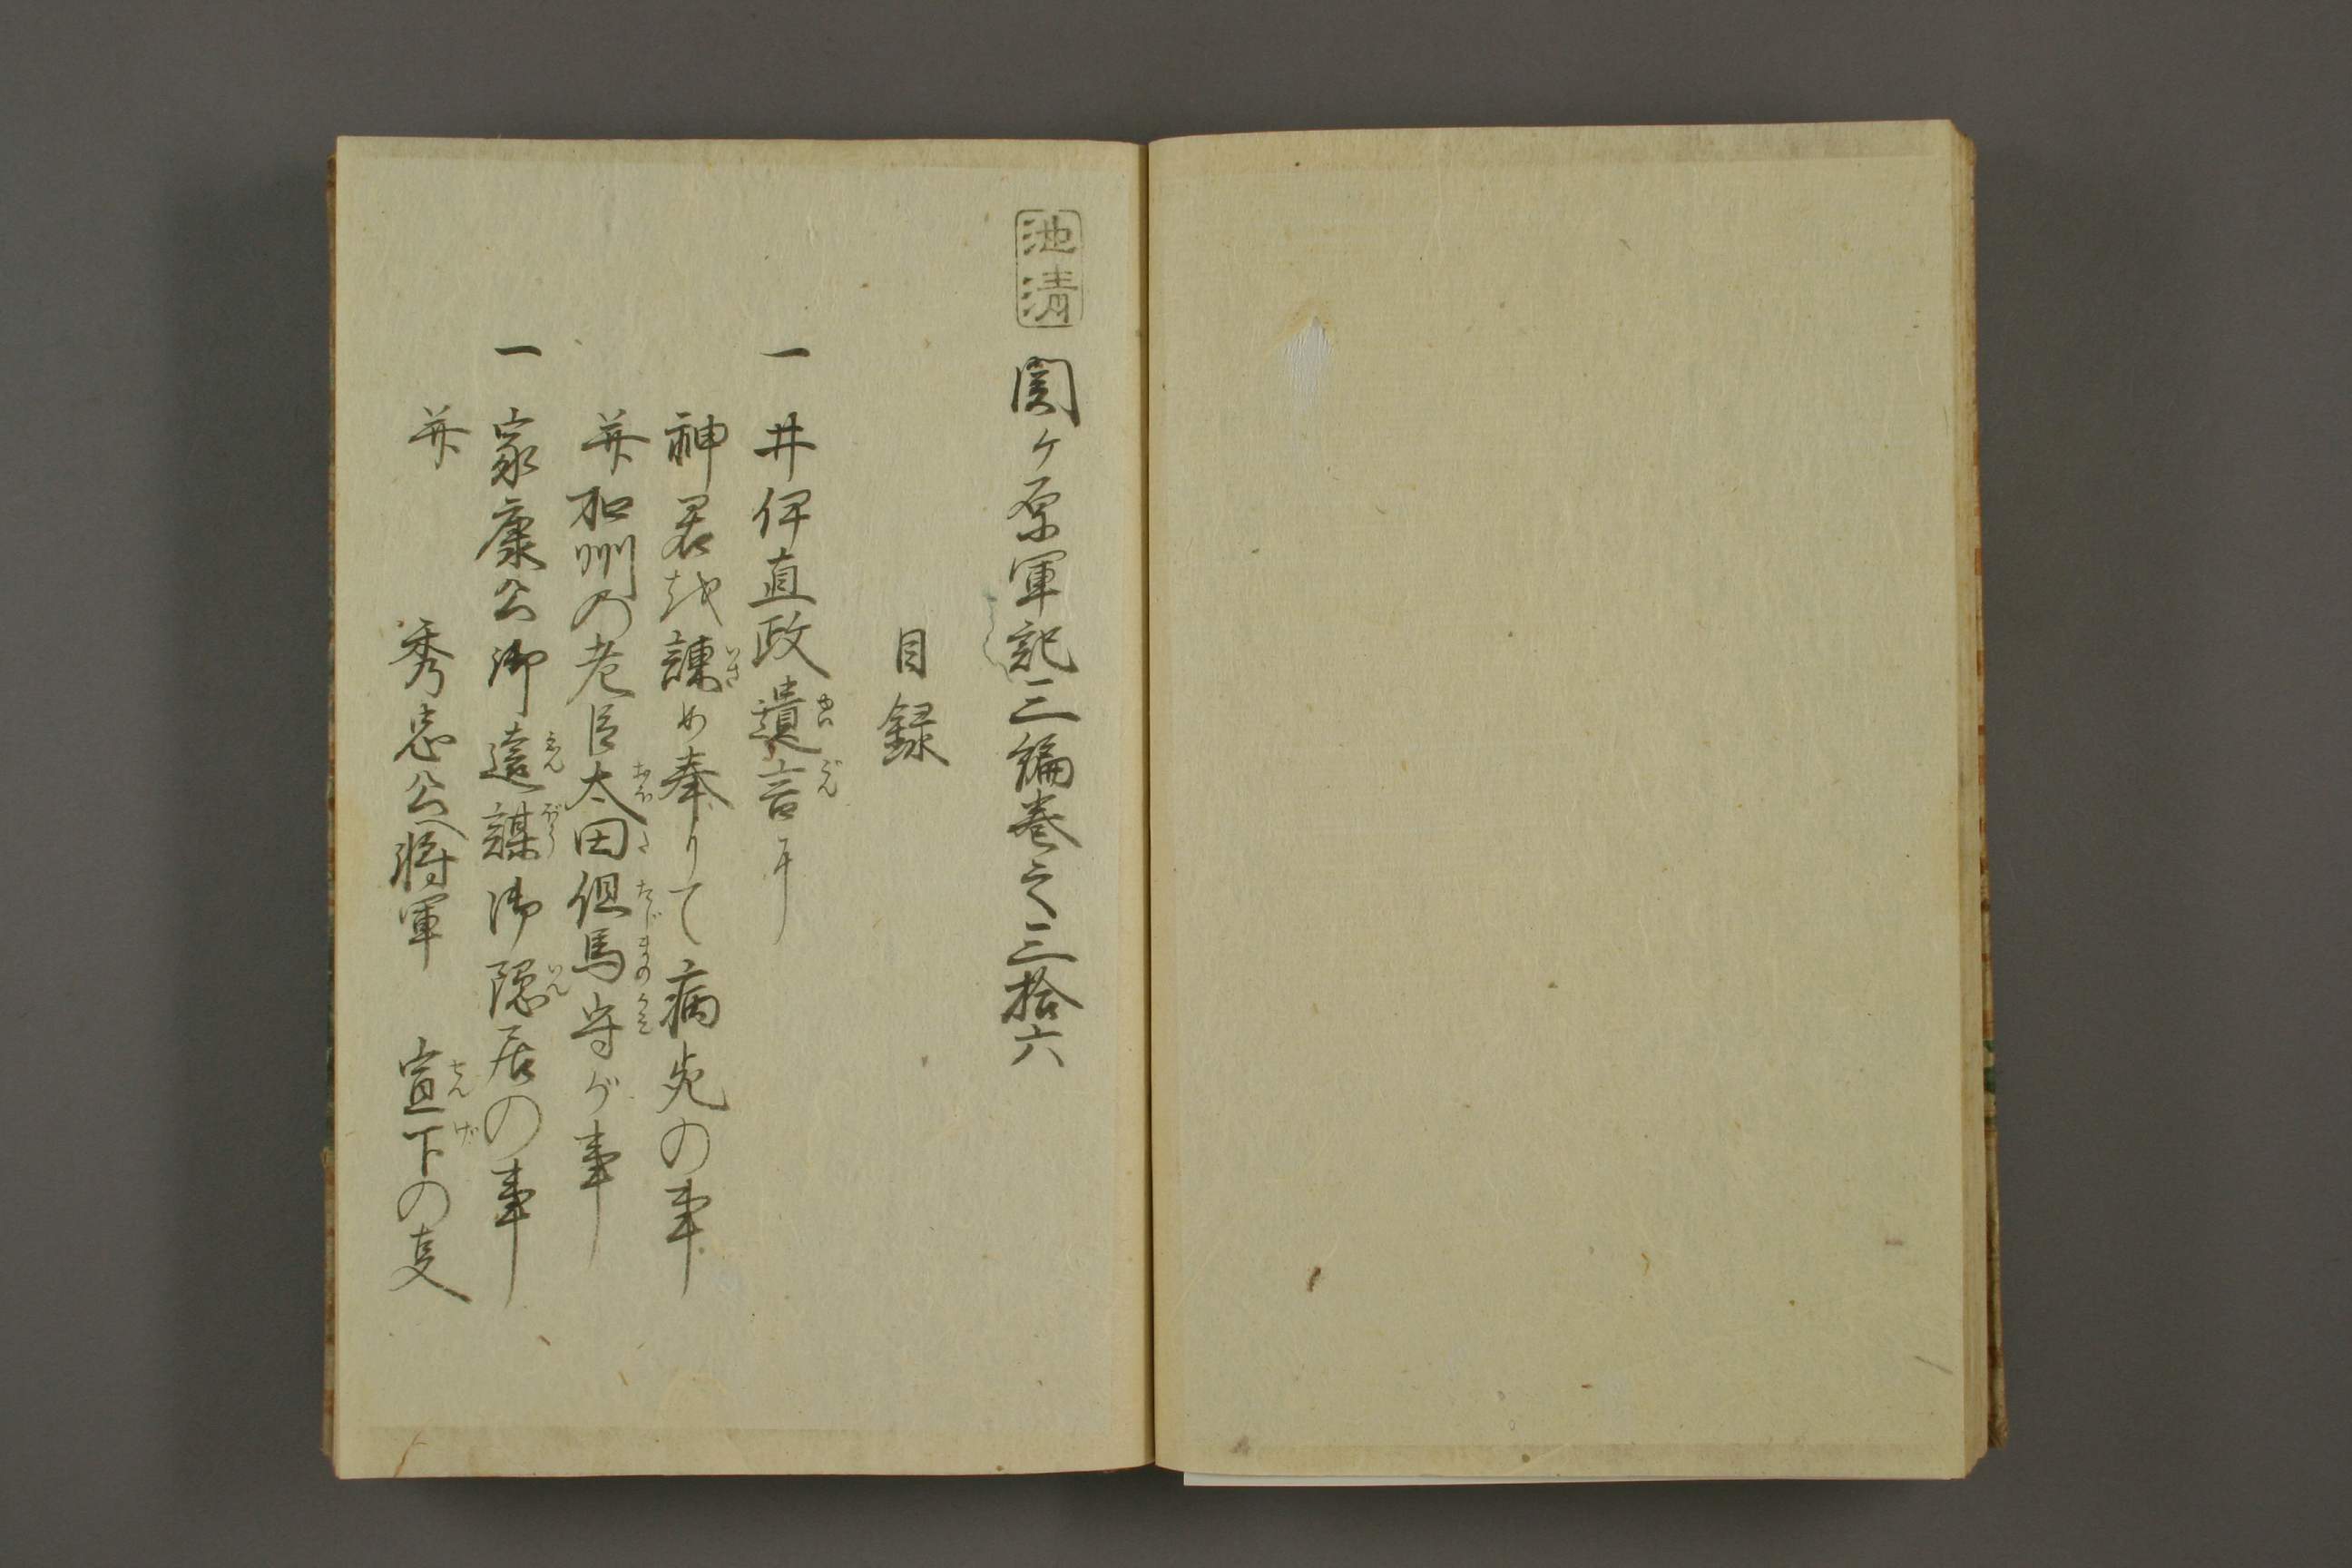 池清
関ヶ原軍記三編巻之三拾六
目録
一 井伊直政遺言シテ
神君を諌め奉りて病死の事
并和州の老臣太田但馬守が事
一 家康公御遠謀御隠居の事
并 秀忠公将軍 宣下の支